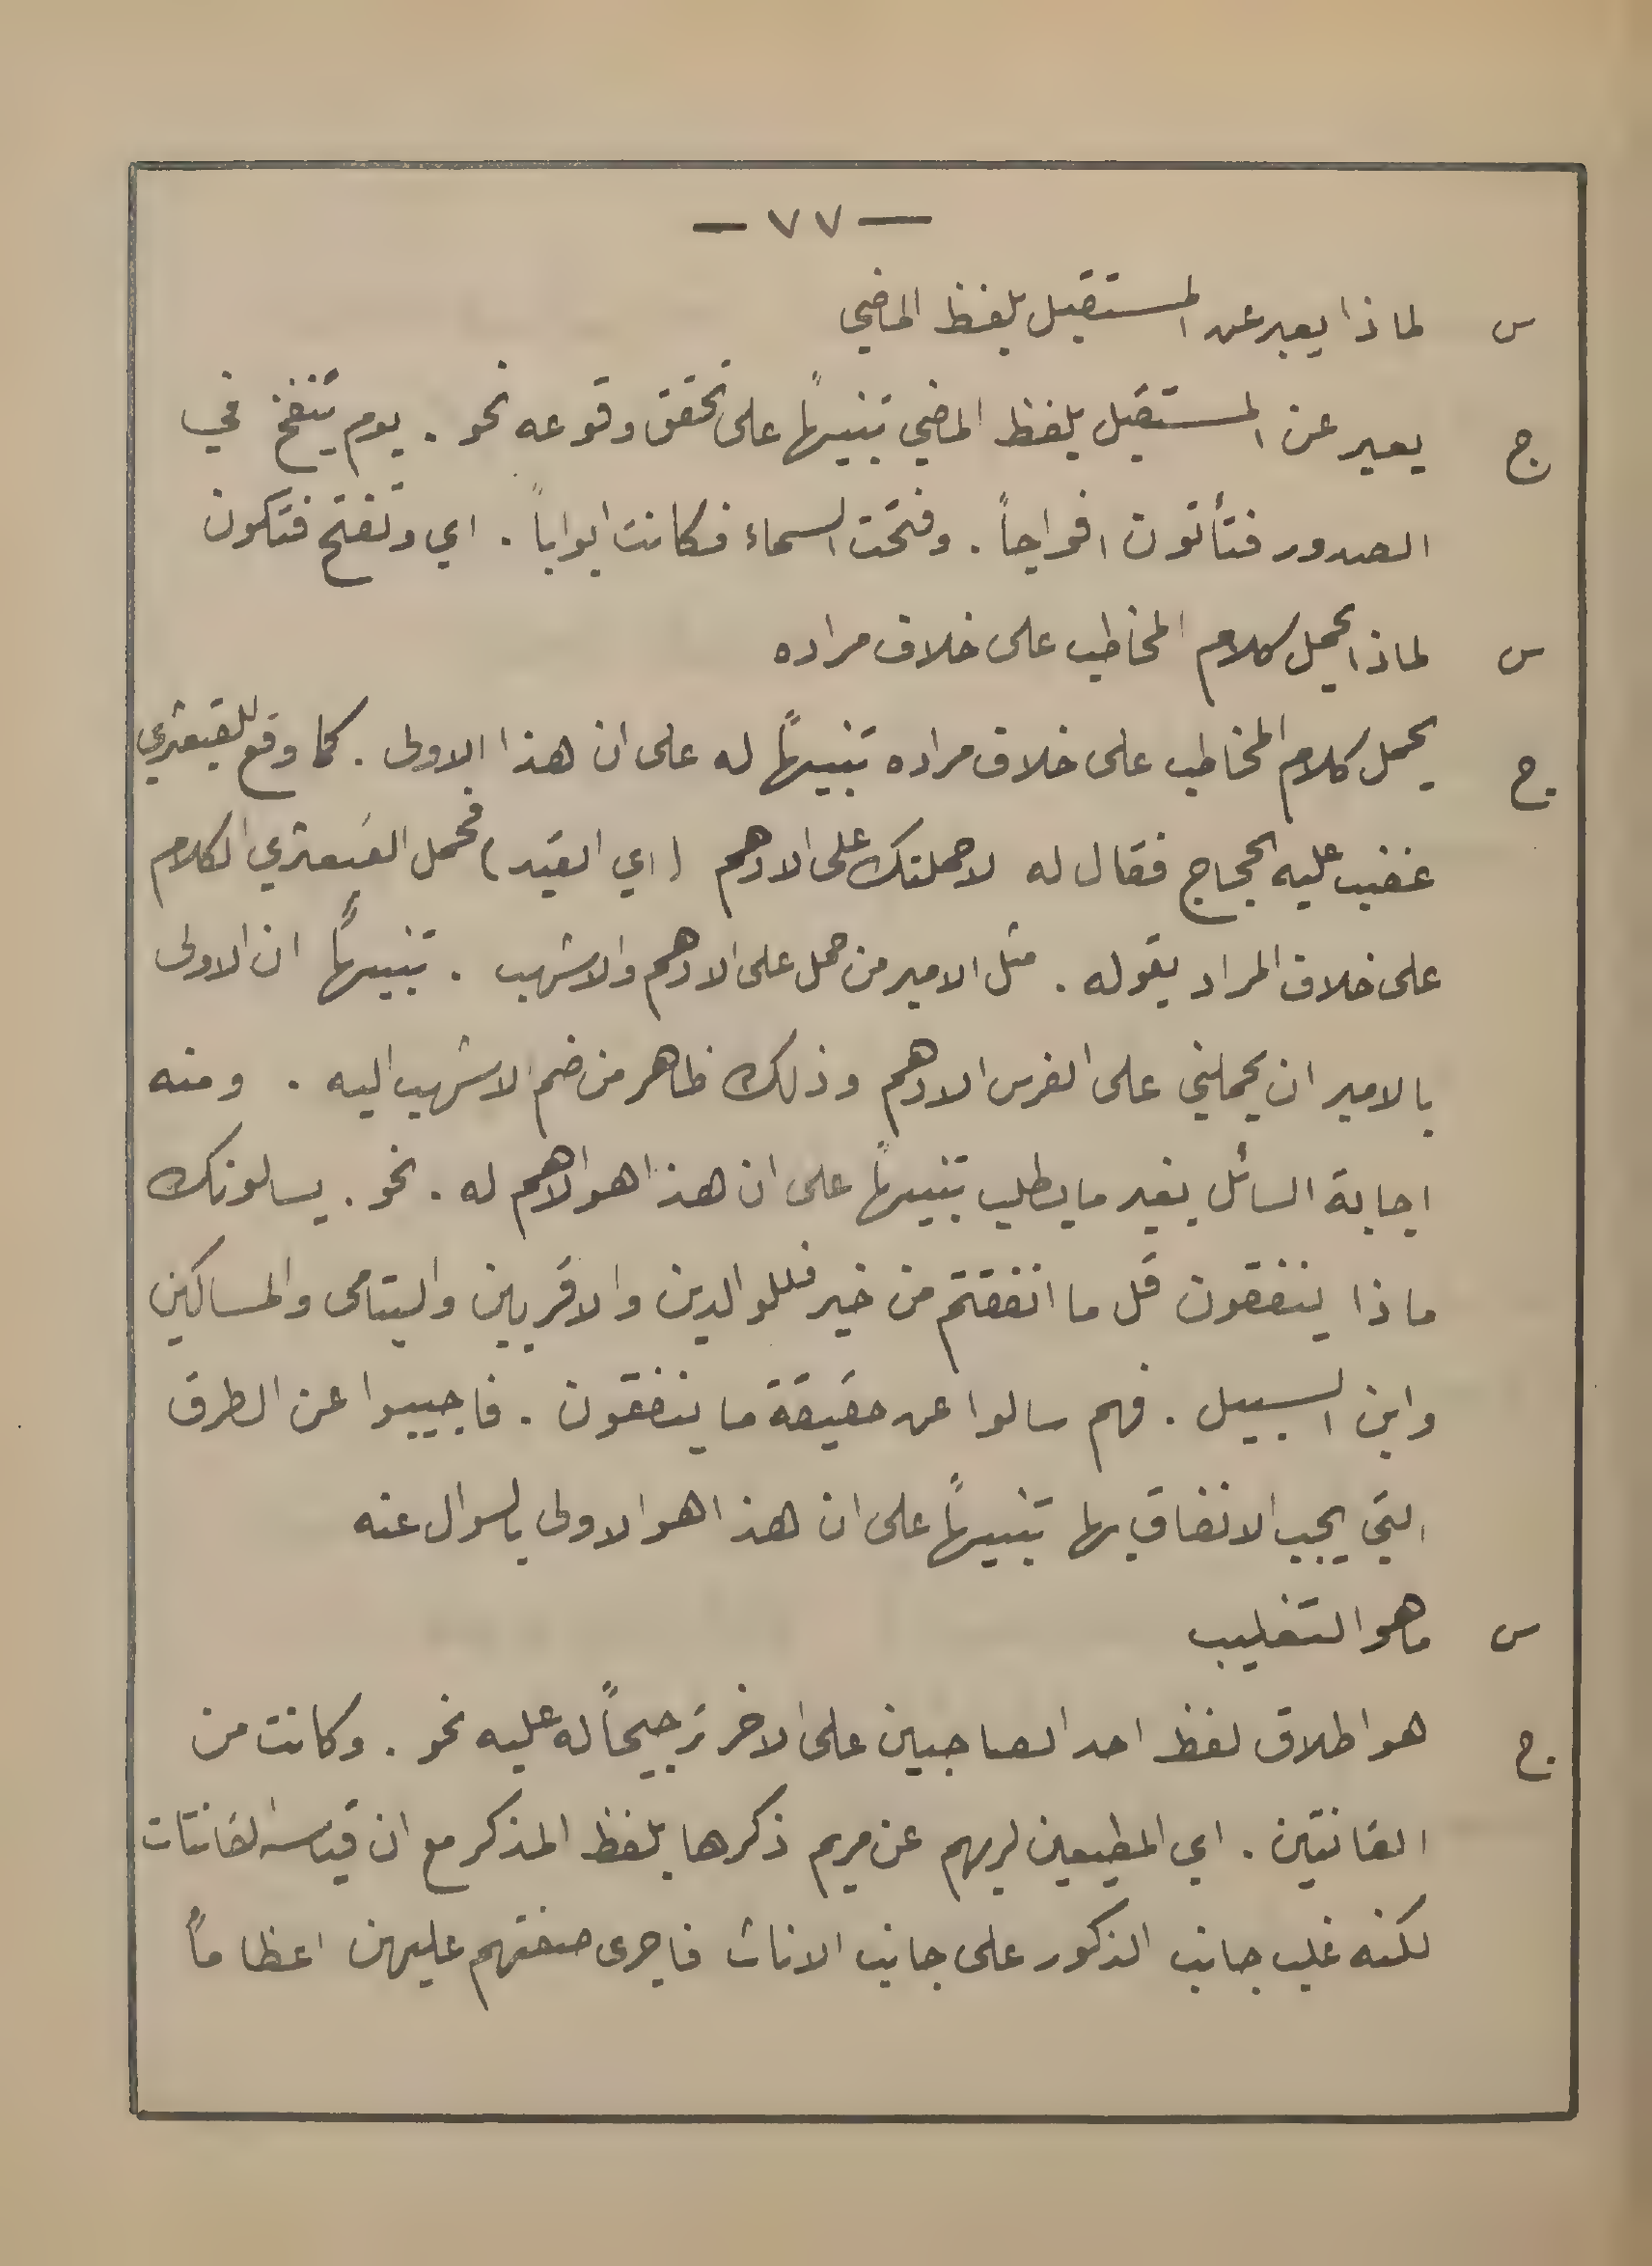 — ٧٧ —
س لماذا يعبر عن المستقبل بلفظ الماضي
ج يعبر عن المستقبل بلفظ الماضي تنبيهاً على تحقق وقوعه نحو . يوم يُنفخ في
الصدور فتأتون افواجاً . وفتحت السماء فكانت ابواباً . اي وتفتح فتكون
س لماذا يحمل كلام المخاطب على خلاف مراده
ج يحمل كلام المخاطب على خلاف مراده تنبيهاً له على ان هذا الاولى . كما وقع للقبعثري
غضب عليه الحجاج فقال له لاحملنك على الادهم (اي القيد) فحمل القبعثري الكلام
على خلاف المراد بقوله . مثل الامير من حمل على الادهم والاشهب . تنبيهاً ان الاولى
بالامير ان يحملني على الفرس الادهم وذلك ظاهر من ضم الاشهب اليه . ومنه
اجابة السائل بغير ما يطلب تنبيهاً على ان هذا هو الاهم له . نحو . يسالونك
ماذا ينفقون قل ما انفقتم من خير فللوالدين والاقربين واليتامى والمساكين
وابن السبيل . فهم سالوا عن حقيقة ما ينفقون . فاجيبوا عن الطرق
التي يجب الانفاق بها تنبيهاً على ان هذا هو الاولى بالسوال عنه
س ما هو التغليب
ج هو اطلاق لفظ احد الصاحبين على الاخر ترجيحاً له عليه نحو . وكانت من
القانتين . اي المطيعين لربهم عن مريم ذكرها بلفظ المذكر مع ان قياسه القانتات
لكنه غلب جانب الذكور على جانب الاناث فاجرى صفتهم عليهن اعظاماً